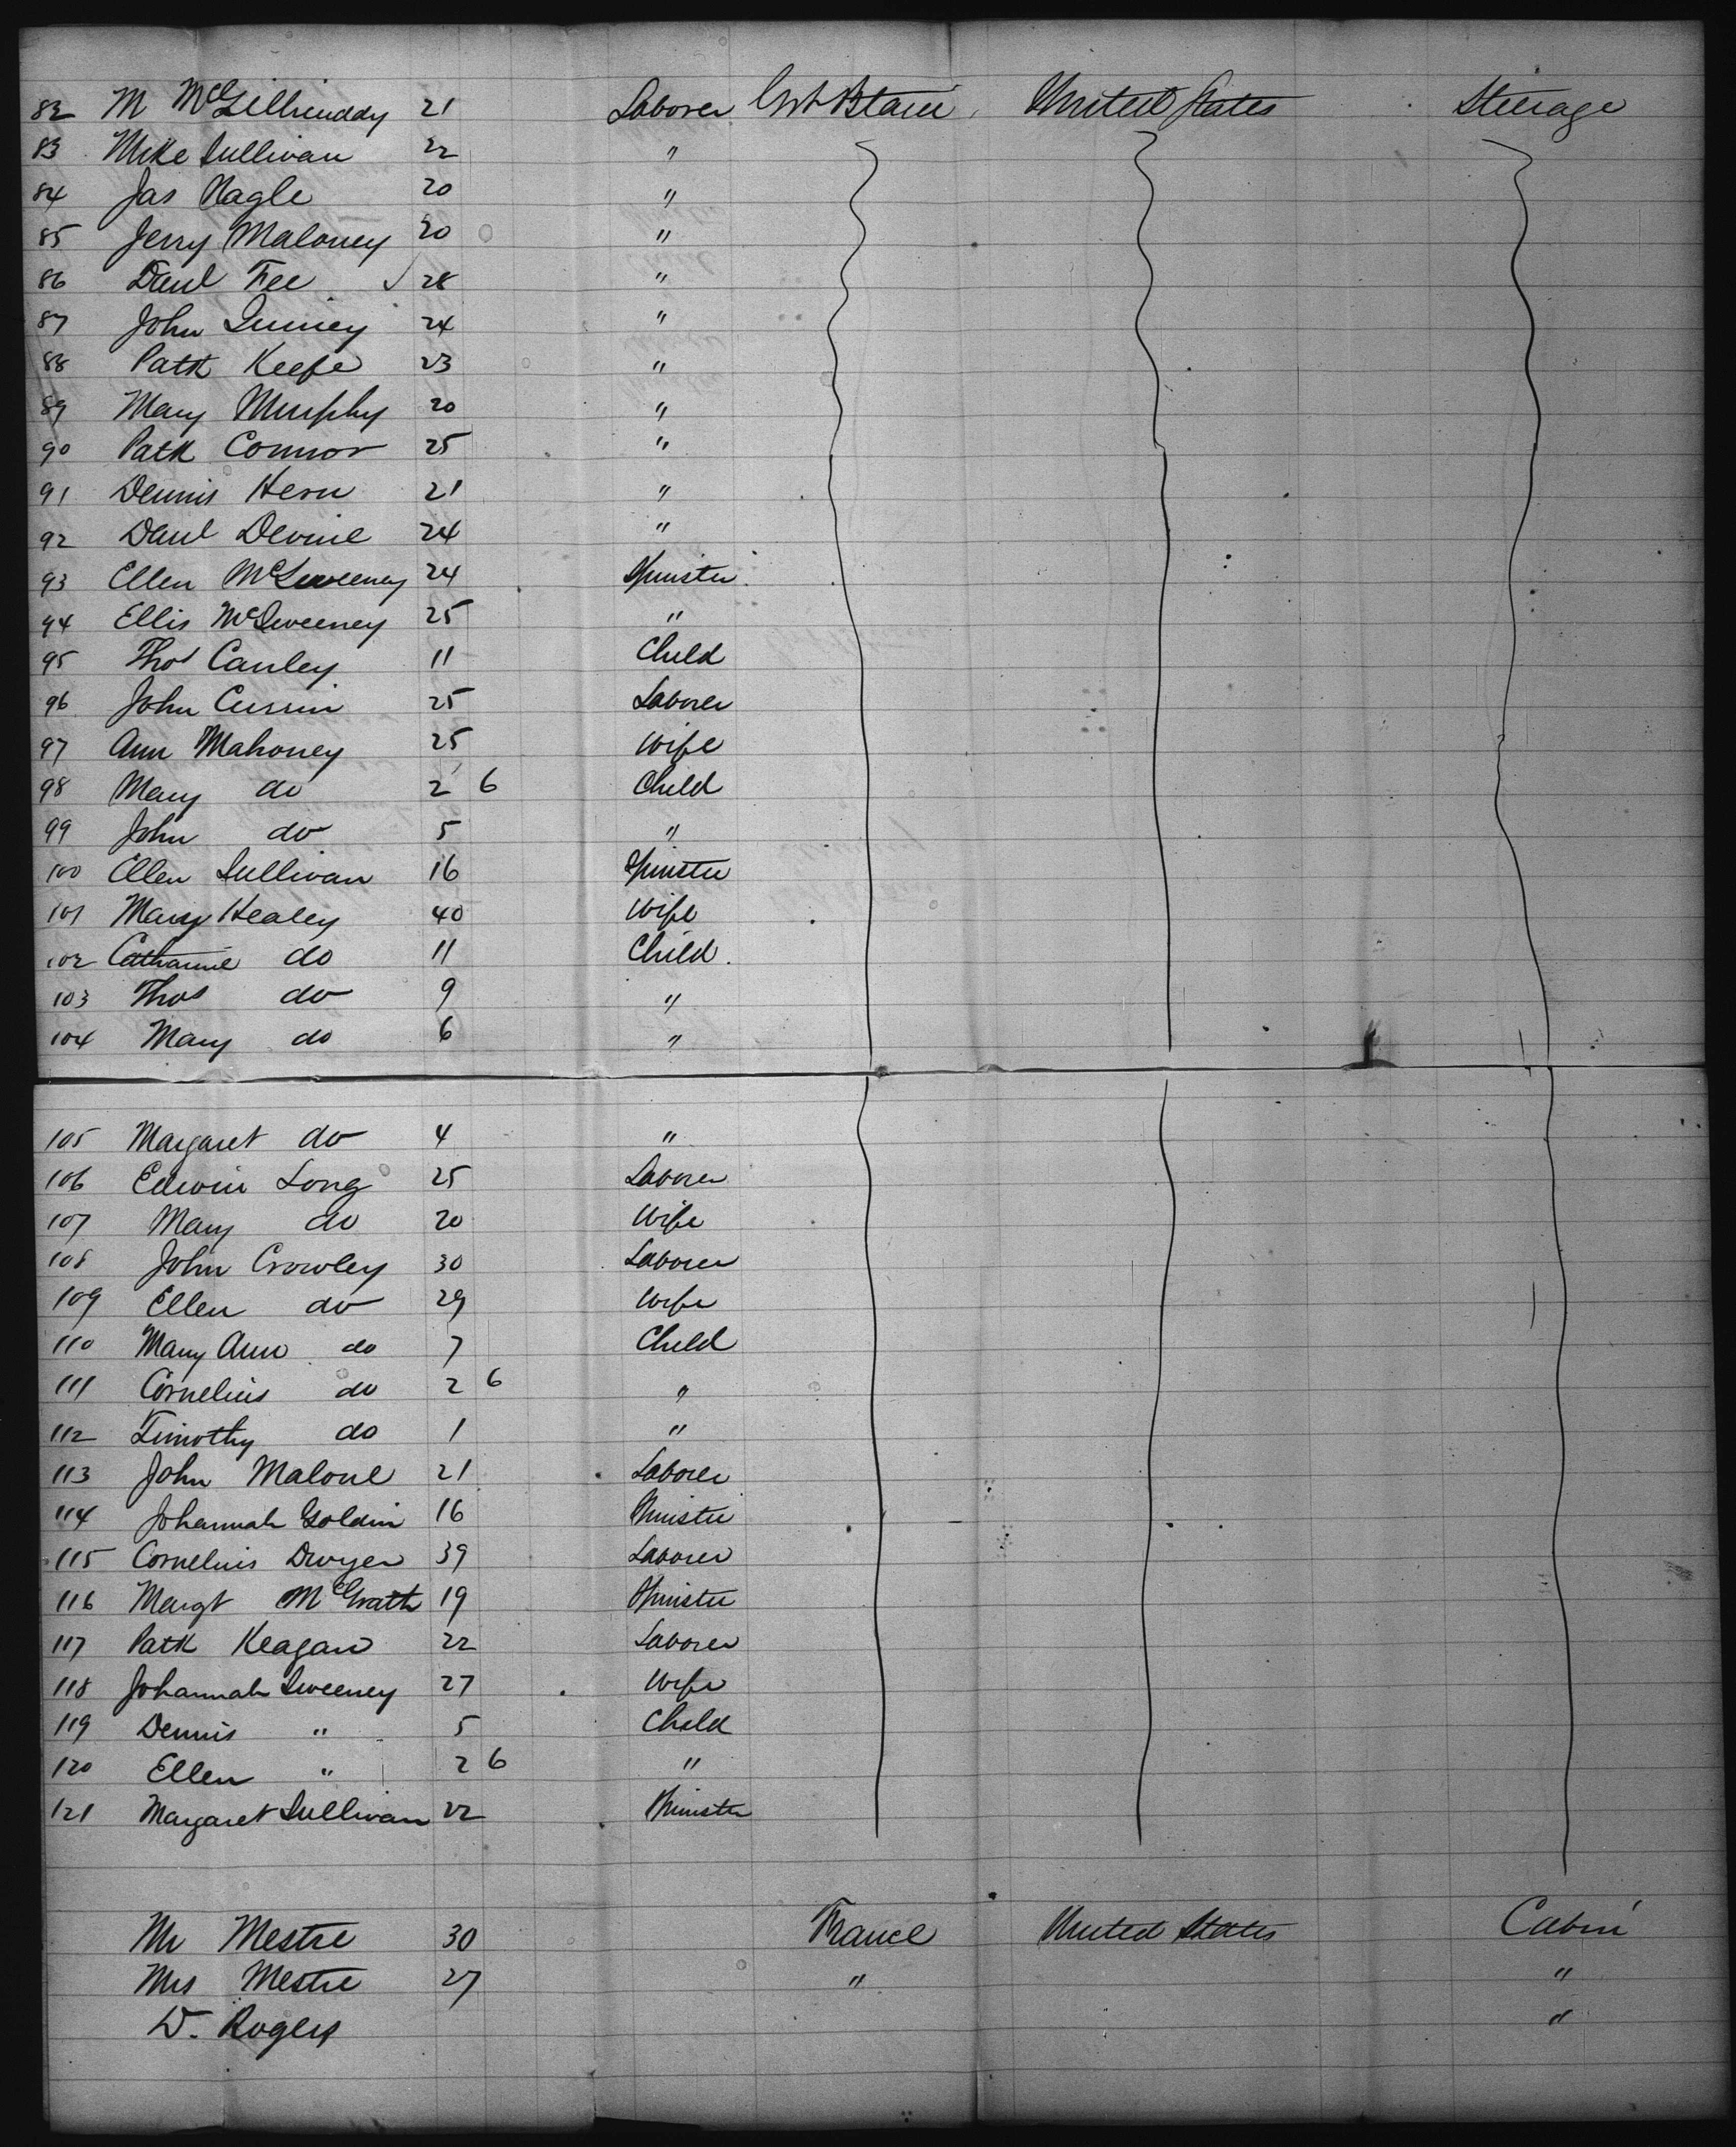 82 M McGillicuddy 21 Laborer Grt Britain United States Steerage
83 Mike Sullivan 22 "
84 Jas Nagle 20 "
85 Jerry Maloney 20 "
86 Danl Fee ✓ 28 "
87 John 24 "
88 Patk Keefe 23 "
89 Mary Murphy 20 "
90 Patk Connor 25 "
91 Dennis Hern 21 "
92 Danl Devine 24 "
93 Ellen McSweeney 24 Spinster
94 Ellis McSweeney 25 "
95 Thos Canley 11 Child
96 John 25 Laborer
97 Ann Mahoney 25 Wife
98 Mary do 2 6 Child
99 John do 5 "
100 Ellen Sullivan 16 Spinster
101 Mary Healey 40 Wife
102 Catharine do 11 Child.
103 Thos do 9 "
104 Mary do 6 "
105 Margaret do 4 "
106 Edwin Long 25 Laborer
107 Mary do 20 Wife
108 John Crowley 30 Laborer
109 Ellen do 29 Wife
110 Mary Ann do 7 Child
111 Cornelius do 2 6 "
112 Timothy do 1 "
113 John Malone 21 Laborer
114 Johannah Goldin 16 Spinster
115 Cornelius Dwyer 39 Laborer
116 Margt McGrath 19 Spinster
117 Patk Keagan 22 Laborer
118 Johannah Sweeney 27 Wife
119 Dennis " 5 Child
120 Ellen " 2 6 "
121 Margaret Sullivan 22 Spinster
Mr Mestre 30 France United States Cabin
Mrs Mestre 27 " "
D. Rogers "